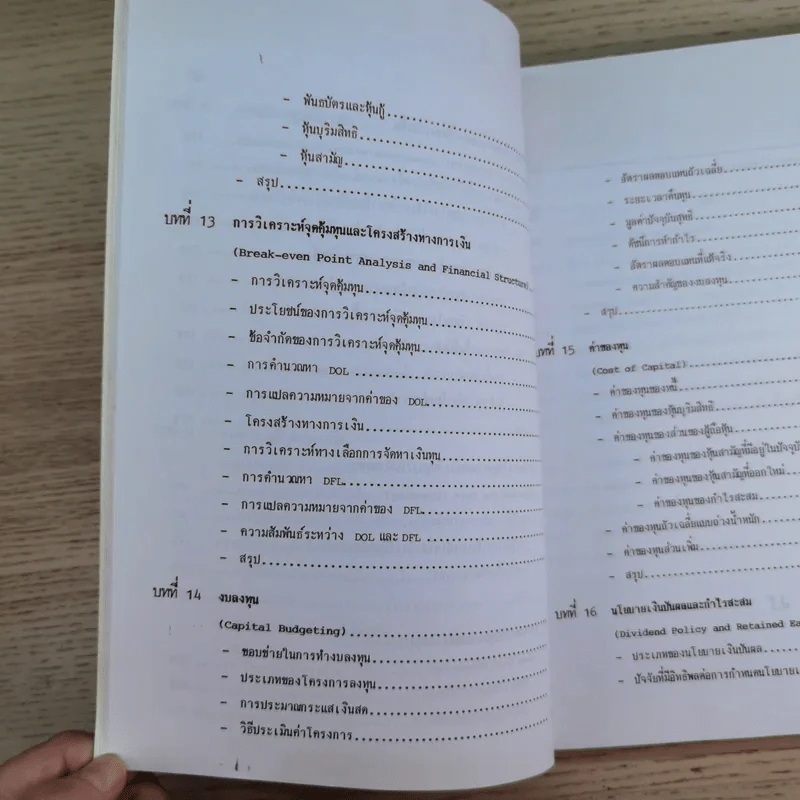 - พันธบัตรและหุ้นกู้
- หุ้นบุริมสิทธิ
- หุ้นสามัญ
- สรุป
บทที่ 13 การวิเคราะห์จุดคุ้มทุนและโครงสร้างทางการเงิน
(Break-even Point Analysis and Financial Structure)
- การวิเคราะห์จุดคุ้มทุน
- ประโยชน์ของการวิเคราะห์จุดคุ้มทุน
- ข้อจำกัดของการวิเคราะห์จุดคุ้มทุน
- การคำนวณหา DOL
- การแปลความหมายจากค่าของ DOL
- โครงสร้างทางการเงิน
- การวิเคราะห์ทางเลือกการจัดหาเงินทุน
- การคำนวณหา DFL
- การแปลความหมายจากค่าของ DFL
- ความสัมพันธ์ระหว่าง DOL และ DFL
- สรุป
บทที่ 14 งบลงทุน
(Capital Budgeting)
- ขอบข่ายในการทำงบลงทุน
- ประเภทของโครงการลงทุน
- การประมาณกระแสเงินสด
- วิธีประเมินค่าโครงการ
- อัตราผลตอบแทนถัวเฉลี่ย
- ระยะเวลาคืนทุน
- มูลค่าปัจจุบันสุทธิ
- ดัชนีการทำกำไร
- อัตราผลตอบแทนที่แท้จริง
- ความสำคัญของงบลงทุน
- สรุป
บทที่ 15 ค่าของทุน
(Cost of Capital)
- ค่าของทุนของหนี้
- ค่าของทุนของหุ้นบุริมสิทธิ
- ค่าของทุนของส่วนของผู้ถือหุ้น
- ค่าของทุนของหุ้นสามัญที่มีอยู่ในปัจจุบั
- ค่าของทุนของหุ้นสามัญที่ออกใหม่
- ค่าของทุนของกำไรสะสม
- ค่าของทุนถัวเฉลี่ยแบบถ่วงน้ำหนัก
- ค่าของทุนส่วนเพิ่ม
- สรุป
บทที่ 16 นโยบายเงินปันผลและกำไรสะสม
(Dividend Policy and Retained Ea
- ประเภทของนโยบายเงินปันผล
- ปัจจัยที่มีอิทธิพลต่อการกำหนดนโยบายเ